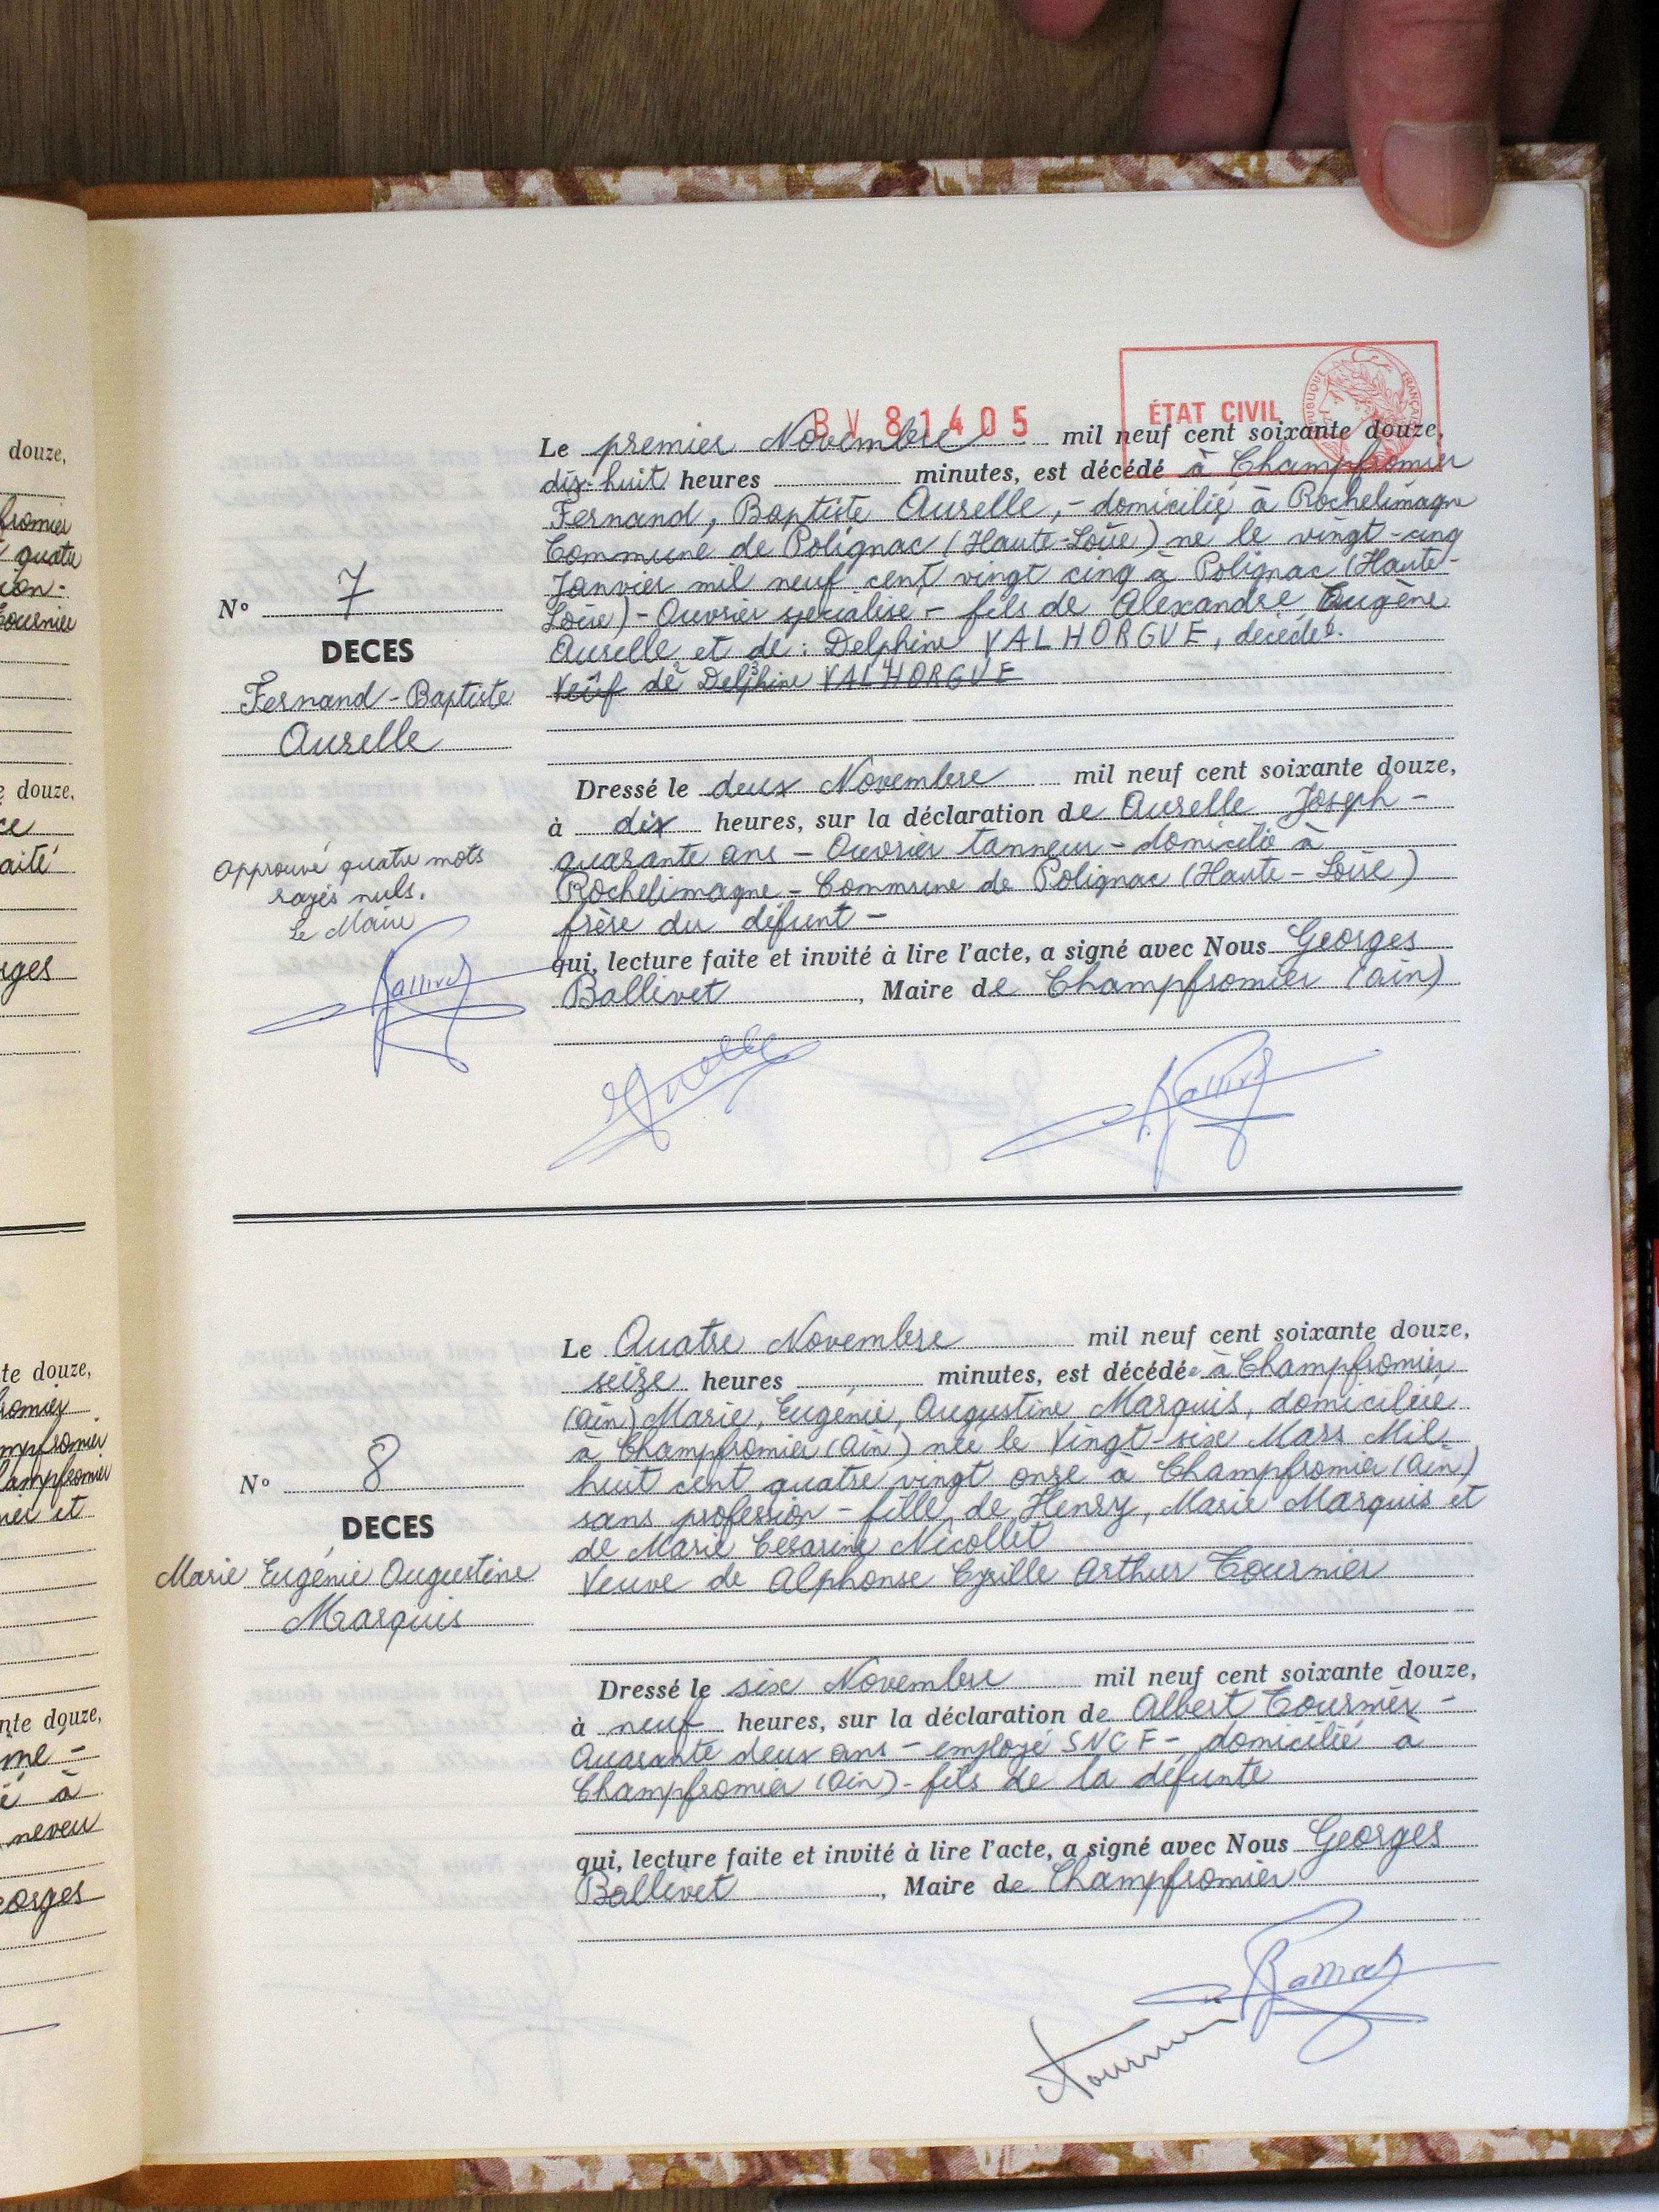 BV 81405
ÉTAT CIVIL
Le premier Novembre mil neuf cent soixante douze,
dix-huit heures minutes, est décédé à Champfromier
Fernand, Baptiste Aurelle, - domicilié à Rochelimagne
Commune de Polignac (Haute-Loire) né le vingt-cinq
Janvier mil neuf cent vingt cinq à Polignac (Haute-
Loire) - Ouvrier spécialisé - fils de Alexandre Eugène
Aurelle et de : Delphine VALHORGUE, décédés.
Veuf de Delphine VALHORGUE
N° 7
DECES
Fernand-Baptiste
Aurelle
Approuvé quatre mots
rayés nuls.
Le Maire
Dressé le deux Novembre mil neuf cent soixante douze,
à dix heures, sur la déclaration de Aurelle Joseph -
quarante ans - Ouvrier tanneur - domicilié à
Rochelimagne - Commune de Polignac (Haute-Loire)
frère du défunt -
qui, lecture faite et invité à lire l'acte, a signé avec Nous Georges
Ballivet, Maire de Champfromier (Ain)
Le Quatre Novembre mil neuf cent soixante douze,
seize heures minutes, est décédée à Champfromier
(Ain) Marie, Eugénie, Augustine Marquis, domiciliée
à Champfromier (Ain) née le Vingt-six Mars Mil
huit cent quatre vingt onze à Champfromier (Ain)
sans profession - fille de Henry, Marie Marquis et
de Marie Césarine Nicollet
Veuve de Alphonse Cyrille Arthur Tournier
N° 8
DECES
Marie Eugénie Augustine
Marquis
Dressé le six Novembre mil neuf cent soixante douze,
à neuf heures, sur la déclaration de Albert Tournier -
Quarante deux ans - employé SNCF - domicilié à
Champfromier (Ain) - fils de la défunte
qui, lecture faite et invité à lire l'acte, a signé avec Nous Georges
Ballivet, Maire de Champfromier
Tournier
douze,
fromier
quatre
Tournier
douze,
rges
te douze,
romier
mpfromier
ampfromier
et
nte douze,
me -
é à
neveu
eorges